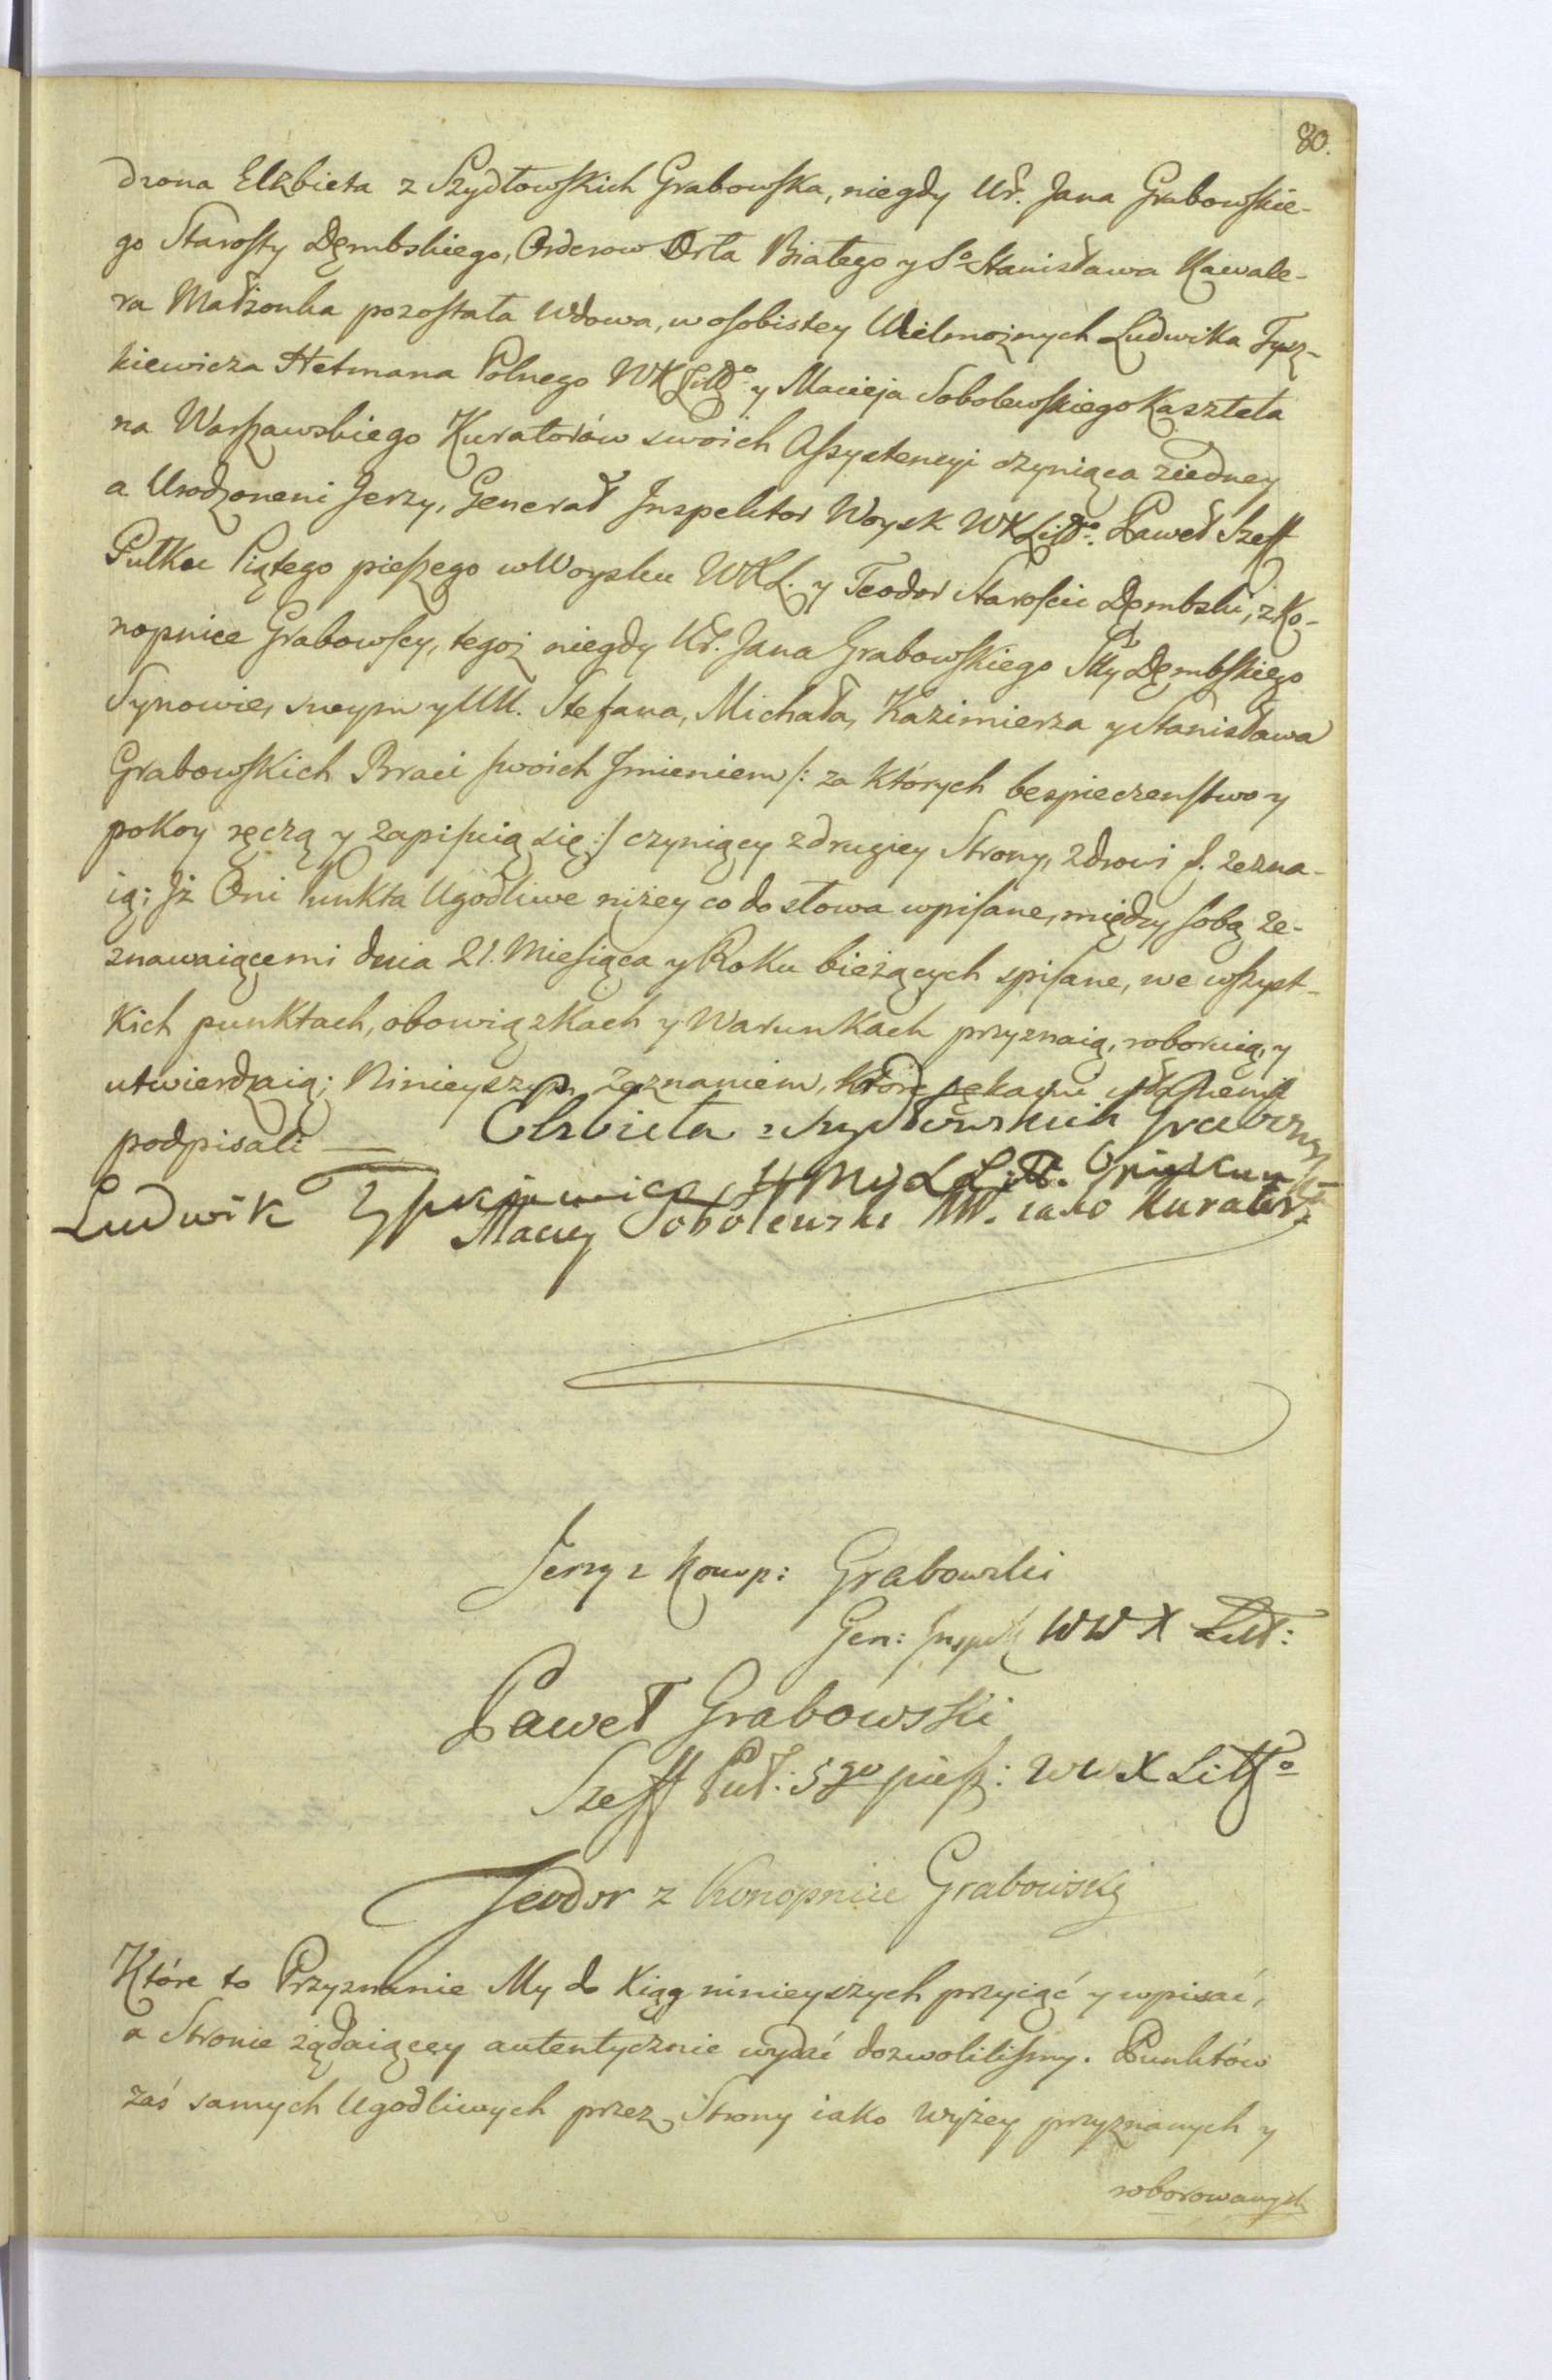 80.
dzona Elżbieta z Szydłowskich Grabowska, niegdy Ur. Jana Grabowskie-
go Starosty Dęmbskiego, Orderow Orła Białego y So Stanisława Kawale-
ra Małżonka pozostała Wdowa, w osobistey Wielmożnych Ludwika Tysz-
kiewicza Hetmana Polnego WXLitgo y Macieja Sobolewskiego Kasztela
na Warszawskiego Kuratorów swoich Assystencyi czyniąca ziedney
a Urodzoneni Jerzy, Generał Inspektor Woysk WXLitgo. Paweł Szeff
Pułku Piątego pieszego w Woysku WXL. y Teodor Starościc Dęmbski, z Ko-
nopnice Grabowscy, tegoż niegdy Ur. Jana Grabowskiego Stty Dęmbskiego
Synowie, swym y UU. Stefana, Michała, Kazimierza y Stanisława
Grabowskich Braci swoich Imieniem /: za których bespieczenstwo y
pokoy ręczą y zapisuią się :/ czyniący z drugiey Strony, zdrowi f. zezna-
ią; Iż Oni Punkta Ugodliwe niżey co do słowa wpisane, między sobą ze-
znawaiącemi dnia 21. Miesiąca y Roku bieżących spisane, we wszyst-
kich punktach, obowiązkach y Warunkach przyznaią, roboruią, y
utwierdzaią; Ninieyszym zeznaniem, które rękami własnemi
podpisali —
Elzbieta z Szydłowskich Grabowska
Ludwik Tyszkiewicz Opiekun
Maciey Sobolewski KW. iako Kurator
Jerzy z Konop: Grabowski
Gen: Inspek WWX Litt:
Paweł Grabowski
Szeff Puł: 5go piesz: WWX Littgo
Teodor z Konopnice Grabowski
Które to Przyznanie My do Xiąg ninieyszych przyiąć y wpisać,
a Stronie żądaiącey autentycznie wydać dozwolilismy. Punktów
zaś samych Ugodliwych przez Strony iako wyżey przyznanych y
roborowanych